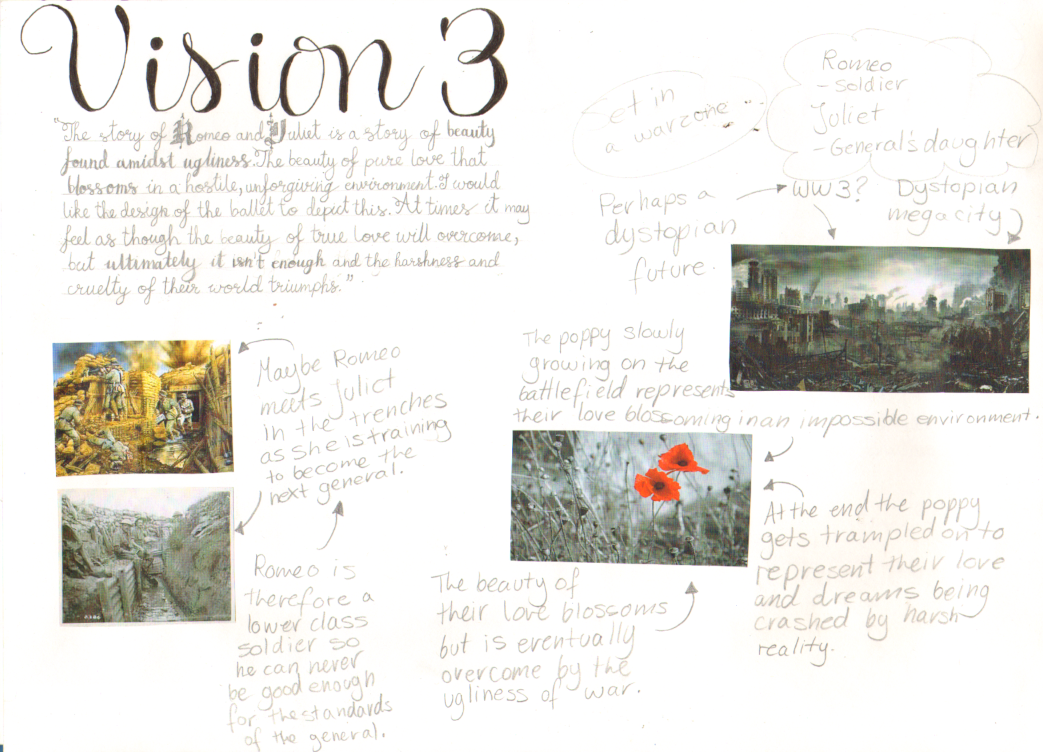 Vision 3
"The story of Romeo and Juliet is a story of beauty
found amidst ugliness. The beauty of pure love that
blossoms in a hostile, unforgiving environment. I would
like the design of the ballet to depict this. At times it may
feel as though the beauty of true love will overcome,
but ultimately it isn't enough and the harshness and
cruelty of their world triumphs."
Set in
a warzone...
Romeo
- soldier
Juliet
- General's daughter
Perhaps a
dystopian
future.
WW3?
Dystopian
megacity
The poppy slowly
growing on the
battlefield represents
their love blossoming in an impossible environment.
Maybe Romeo
meets Juliet
in the trenches
as she is training
to become the
next general.
Romeo is
therefore a
lower class
soldier so
he can never
be good enough
for the standards
of the general.
The beauty of
their love blossoms
but is eventually
overcome by the
ugliness of war.
At the end the poppy
gets trampled on to
represent their love
and dreams being
crashed by harsh
reality.